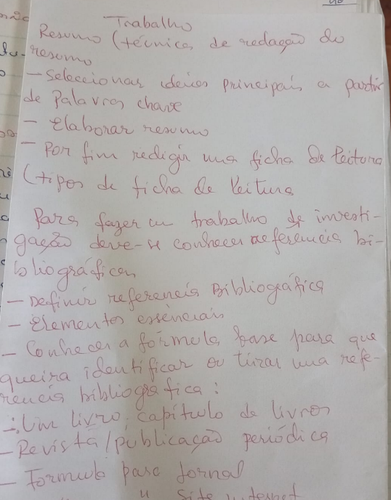 Trabalho
Resumo (técnicas de redação do
resumo
- Seleccionar ideias principais a partir
de Palavras chave
- Elaborar resumo
- Por fim redigir uma ficha de leitura
(tipos de ficha de leitura
Para fazer um trabalho de investi-
gação deve-se conhecer referência bi-
bliográfica,
- Definir referencia Bibliográfica
- Elementos essenciais
- Conhecer a fórmula base para que
queira identificar ou tirar uma refe-
rência bibliográfica:
: Um livro, capítulo de livros
- Revista/publicação periódica
- Formula para Jornal
" Site Internet